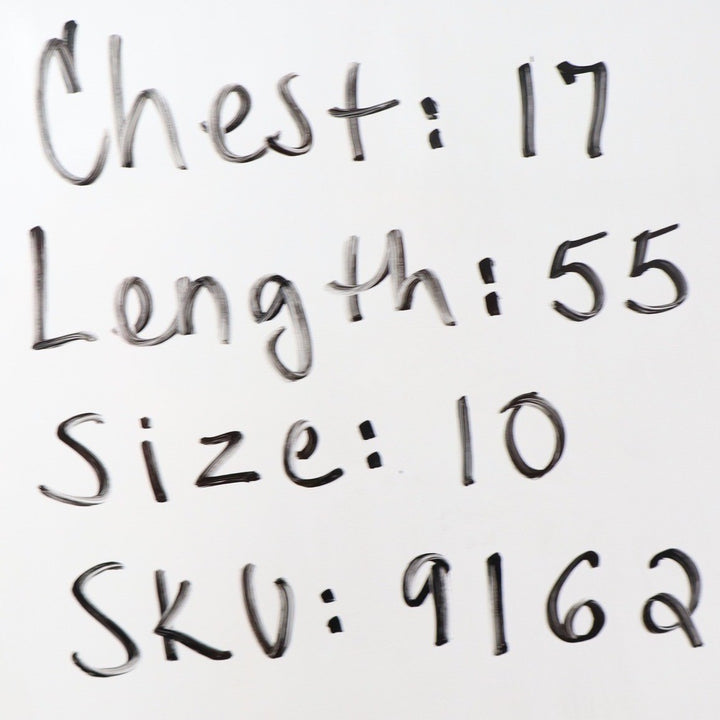 Chest: 17
Length: 55
Size: 10
SKU: 9162